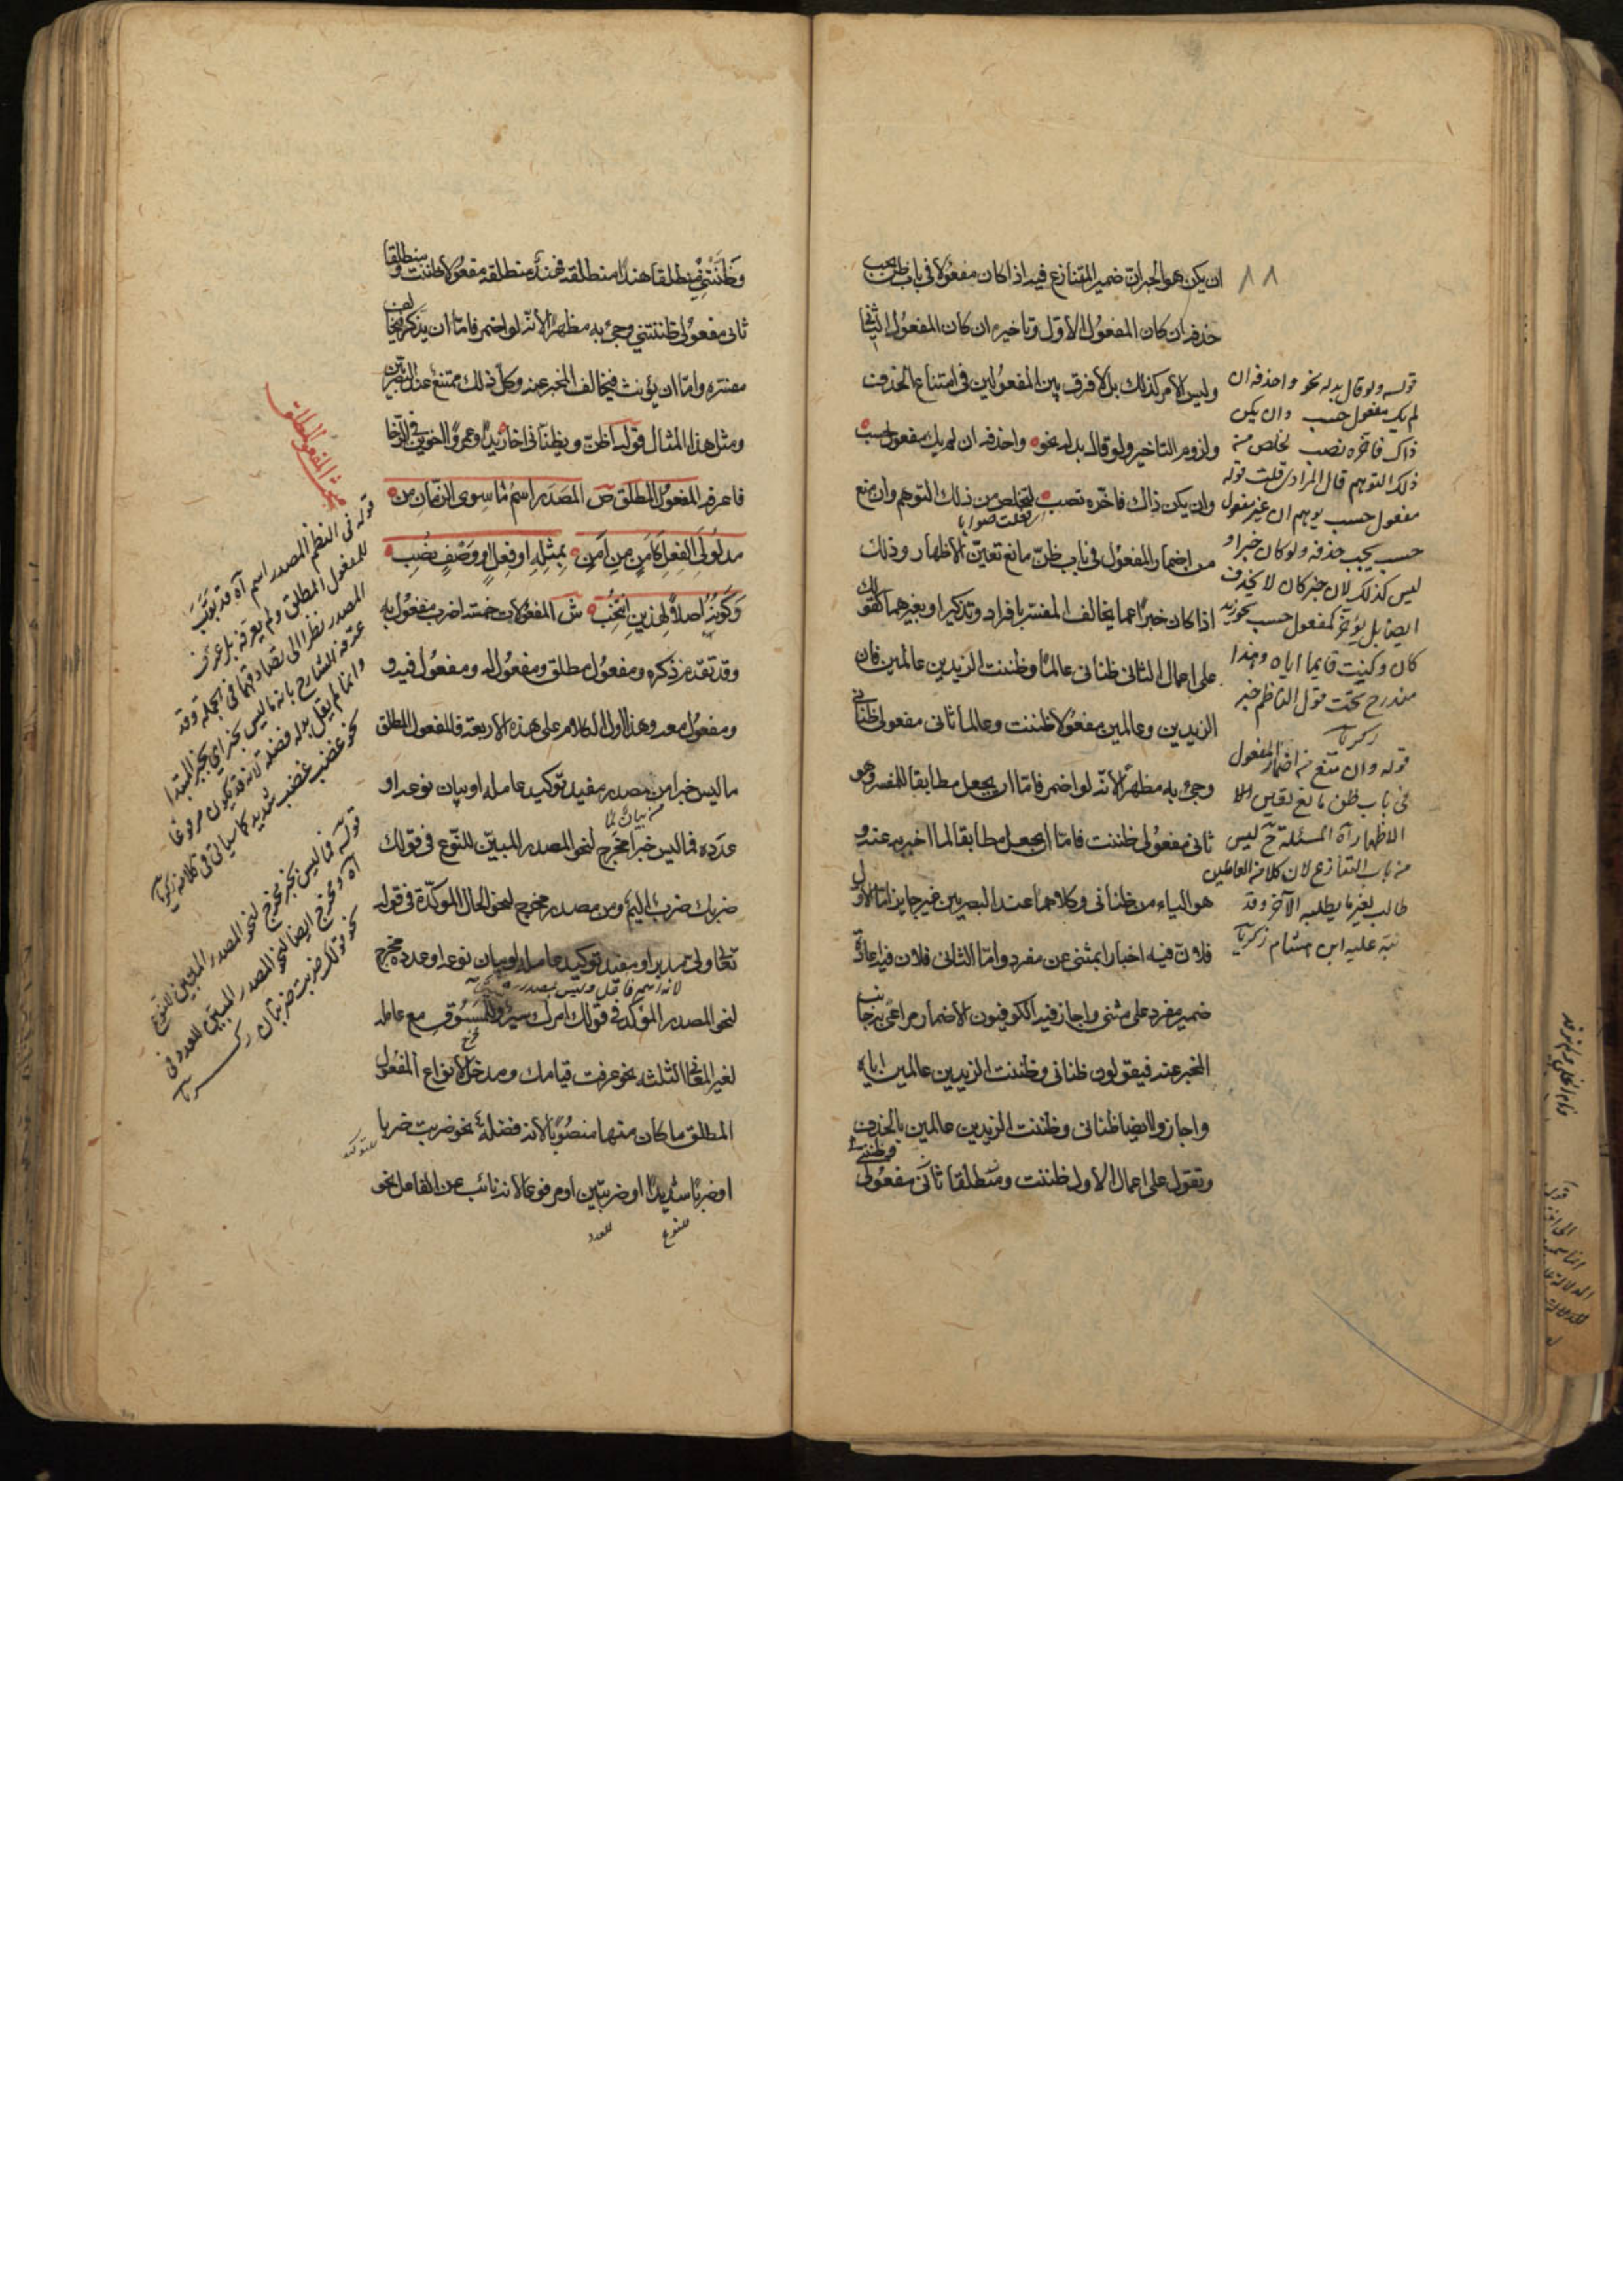 ٨٨
ان يكن هو الخبر ان ضمير المتنازع فيه اذا كان مفعولا في باب ظن يجب
حذفه ان كان المفعول الاول وتاخيره ان كان المفعول الثاني
وليس الامر كذلك بل لا فرق بين المفعولين في امتناع الحذف
ولزوم التاخير ولو قال بدله نحو واحذفه ان لم يك مفعول حسب
وان يكن ذاك فاخره تصب لتخلص من ذلك التوهم وان منع
من اضمار المفعول في باب ظن مانع تعين الاظهار وذلك
اذا كان خبرا عما يخالف المفسر بافراد وتذكير او بغيرهما كقولك
على اعمال الثاني ظناني عالما وظننت الزيدين عالمين فان
الزيدين وعالمين مفعولا ظننت وعالما ثاني مفعولي ظناني
وجيء به مظهرا لانه لو اضمر فاما ان يجعل مطابقا للمفسر وهو
ثاني مفعولي ظننت فاما ان يجعل مطابقا لما اخبر به عنه و
هو الياء من ظناني وكلاهما عند البصريين غير جايز اما الاول
فلان فيه اخبارا بمثنى عن مفرد واما الثاني فلان فيه اعادة
ضمير مفرد على مثنى واجاز فيه الكوفيون الاضمار مراعى به جانب
المخبر عنه فيقولون ظناني وظننت الزيدين عالمين اياه
واجازوا ايضا ظناني وظننت الزيدين عالمين بالحذف
وتقول على اعمال الاول ظننت ومنطلقا ثاني مفعولي
وظنتني
قوله ولو قال بدله نحو واحذفه ان
لم يك مفعول حسب وان يكن
ذاك فاخره تصب لخلص من
ذلك التوهم قال المرادي قلت قوله
مفعول حسب يوهم ان غير مفعول
حسب يجب حذفه ولو كان خبرا و
ليس كذلك لان خبر كان لا يحذف
ايضا بل يؤخر كمفعول حسب نحو زيد
كان وكنت قايما اياه وهذا
مندرج تحت قول الناظم خبر
زكريا
قوله وان منع من اضمار المفعول
في باب ظن مانع تعين الا
الاظهار اه المسئلة ح ليس
من باب التنازع لان كلا من العاملين
طالب لغير ما يطلبه الآخر وقد
نبه عليه ابن هشام زكريا
وظنتني منطلقا هندا منطلقة فهند منطلقة مفعولا ظننت ومنطلقا
ثاني مفعولي ظنتني وجيء به مظهرا لانه لو اضمر فاما ان يذكر فيخالف
مفسره واما ان يؤنث فيخالف المخبر عنه وكل ذلك ممتنع عند البصريين
ومثل هذا المثال قوله اظن ويظناني اخا زيدا وعمرا اخوين في الرخا
فاعرفه المفعول المطلق ص المصدر اسم ما سوى الزمان من
مدلولي الفعل كامن من امن بمثله او فعل او وصف نصب
وكونه اصلا لهذين انتخب ش المفعولات خمسة اضرب مفعول به
وقد تقدم ذكره ومفعول مطلق ومفعول له ومفعول فيه و
ومفعول معه وهذا اول الكلام على هذه الاربعة فالمفعول المطلق
ما ليس خبرا من مصدر مفيد توكيد عامله او بيان نوعه او
عدده فما ليس خبرا مخرج لنحو المصدر المبين للنوع في قولك
ضربك ضرب اليم ومن مصدر مخرج لنحو الحال المؤكدة في قوله
تعالى ولى مدبرا ومفيد توكيد عامله او بيان نوعه او عدده مخرج
لانه اسم فاعل وليس بمصدر
لنحو المصدر المؤكد في قولك امرك سير والمسوق مع عامله
لغير المعاني الثلثة نحو عرفت قيامك ومدخل لانواع المفعول
المطلق ما كان منها منصوبا لانه فضلة نحو ضربت ضربا
او ضربا شديدا او ضربتين او مرفوعا لانه نائب عن الفاعل نحو
للتوكيد
للنوع
للعدد
المفعول المطلق
قوله في النظم المصدر اسم اه قد بوب
للمفعول المطلق ولم يعرفه بل عرف
المصدر نظرا الى تصادقهما في الجملة وقد
عرفه الشارح بانه ما ليس بخبر اي بخبر المبتدا
وانما لم يقل بدله فضلة لانه قد يكون مرفوعا
نحو غضب غضب شديد كما سياتي في كلامه زكريا
قوله فما ليس بخبر مخرج لنحو المصدر المبين للنوع
اه ومخرج ايضا لنحو المصدر المبين للعدد في
نحو قولك ضربت ضربتان زكريا